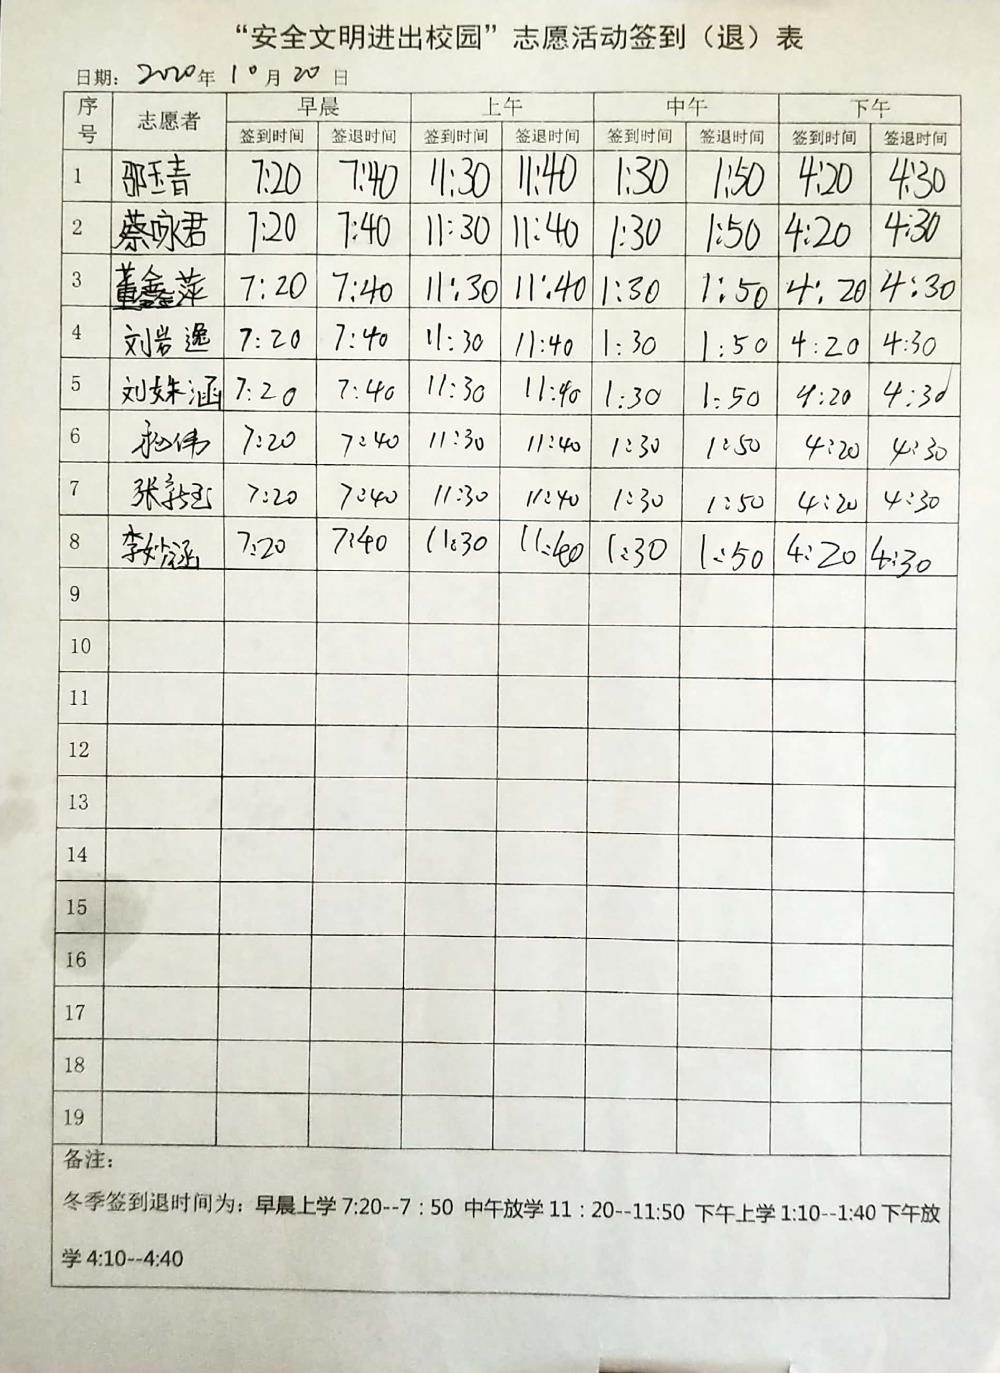 “安全文明进出校园”志愿活动签到（退）表
日期: 2020年10月20日
序号 志愿者 早晨 上午 中午 下午
签到时间 签退时间 签到时间 签退时间 签到时间 签退时间 签到时间 签退时间
1 邵玉青 7:20 7:40 11:30 11:40 1:30 1:50 4:20 4:30
2 蔡咏君 7:20 7:40 11:30 11:40 1:30 1:50 4:20 4:30
3 董鑫萍 7:20 7:40 11:30 11:40 1:30 1:50 4:20 4:30
4 刘岩逸 7:20 7:40 11:30 11:40 1:30 1:50 4:20 4:30
5 刘姝涵 7:20 7:40 11:30 11:40 1:30 1:50 4:20 4:30
6 7:20 7:40 11:30 11:40 1:30 1:50 4:20 4:30
7 7:20 7:40 11:30 11:40 1:30 1:50 4:20 4:30
8 李妙涵 7:20 7:40 11:30 11:40 1:30 1:50 4:20 4:30
9
10
11
12
13
14
15
16
17
18
19
备注:
冬季签到退时间为: 早晨上学 7:20--7：50 中午放学 11：20--11:50 下午上学 1:10--1:40 下午放
学 4:10--4:40